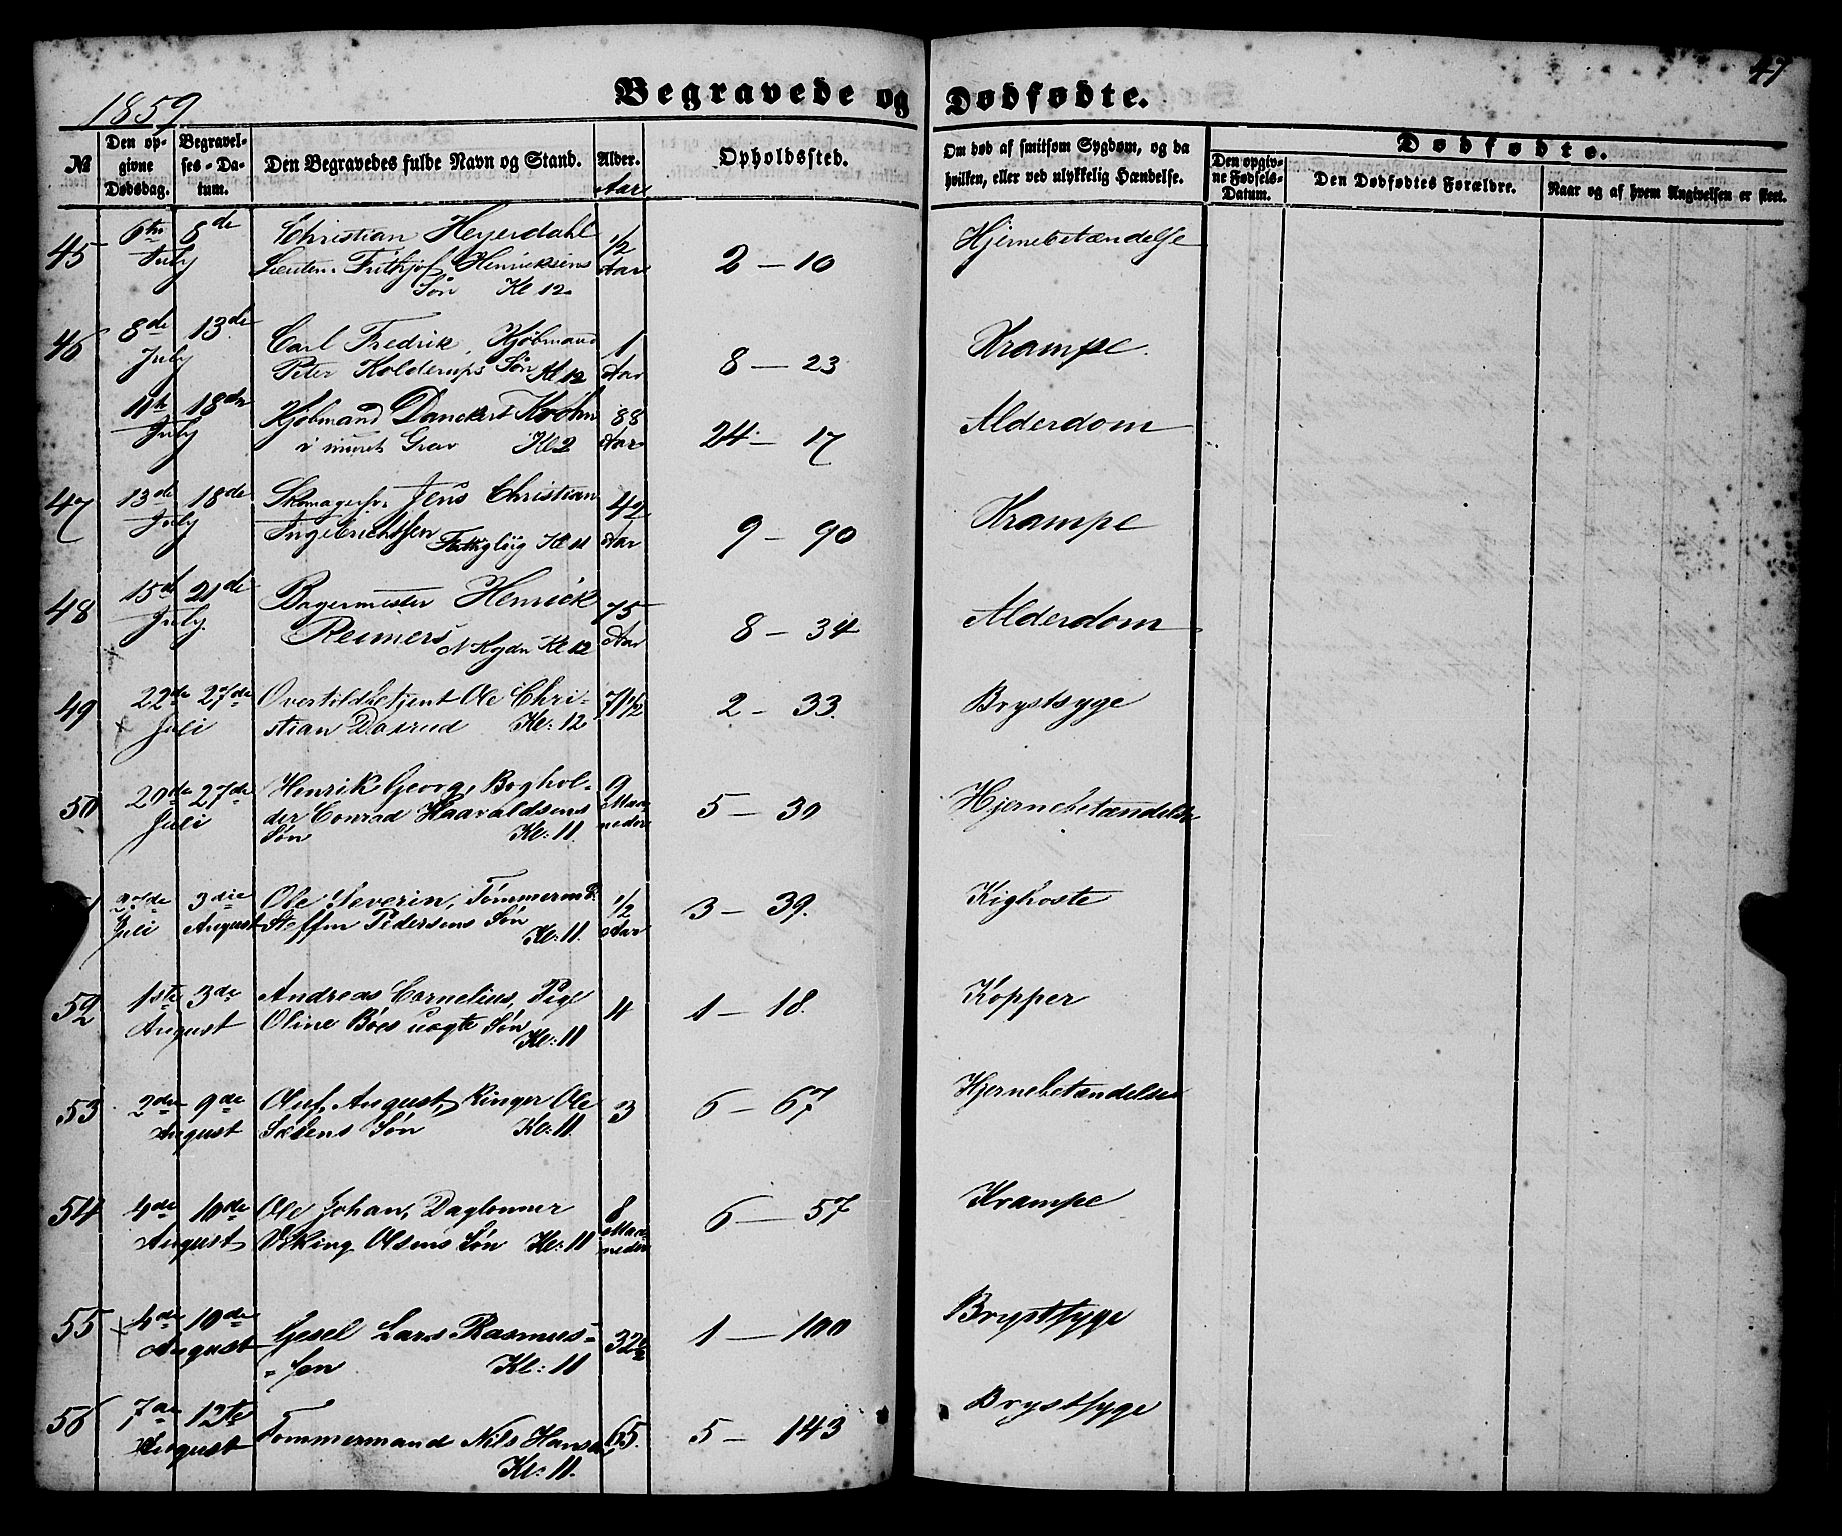 47
1859
Begravede og Dødfødte.
№ Den opgivne Dødsdag. Begravelses-Datum. Den Begravedes fulde Navn og Stand. Alder. Aar Opholdssted. Om død af smitsom Sygdom, og da hvilken, eller ved ulykkelig Hændelse. Dødfødte.
Den opgivne Fødsels-Datum. Den Dødfødtes Forældre. Naar og af hvem Angivelsen er skeet.
45 6te 8de Christian Heyerdahl 1/2 Hjernebetændelse
July Lieuten. Frithjof Henricksens Aar 2 — 10
Søn Kl 12
46 8de 13de Carl Fredrik, Kjøbmand 1 Krampe.
July Peter Kolderups Søn Kl 12 Aar 8 — 23
11te 18de Kjøbmand Danckert Krohn 88 Alderdom
July i muret Grav Kl 2 Aar 24 — 17
47 13de 18de Skomagersv. Jens Christian 42 Krampe
July Ingebrichtsen Kl 11 Aar 9 — 90
48 15de 21de Bagermester Henrick 75 Alderdom
July. Reimers Kl 12 Aar 8 — 34
49 22de 27de Overtoldbetjent Ole Chri- 71 1/2 2 — 33. Brystsyge
Juli stian Kl: 12
50 20de 27de Henrik Georg, Boghol- 9 Hjernebetændelse
Juli der Conrad Haavaldsens Maa- 5 — 30
Søn Kl: 11. neder
27de 3die Ole Severin, Tømmermd. 1/2 Kighoste
Juli August Steffen Pedersens Søn Aar 3 — 39.
Kl: 11.
52 1ste 3die Andreas Cornelius, Pige 4 1 — 18. Kopper
August Oline Böes uægte Søn
Kl: 11
53 2den 9de Oluf August, Ringer Ole 3 6 — 67 Hjernebetændelse
August Søn Kl: 11.
54 4de 10de Ole Johan, Daglønner 8 Krampe
August Viking Olsens Søn Kl: 11 Maa- 6 — 57
neder
55 4de 10de Gesel Lars Rasmus- 32 1 — 100 Brystsyge
August sen Kl: 11
56 7de 12te Tømmermand Nils Hansen 65. 5 — 143 Brystsyge
August Kl: 11.